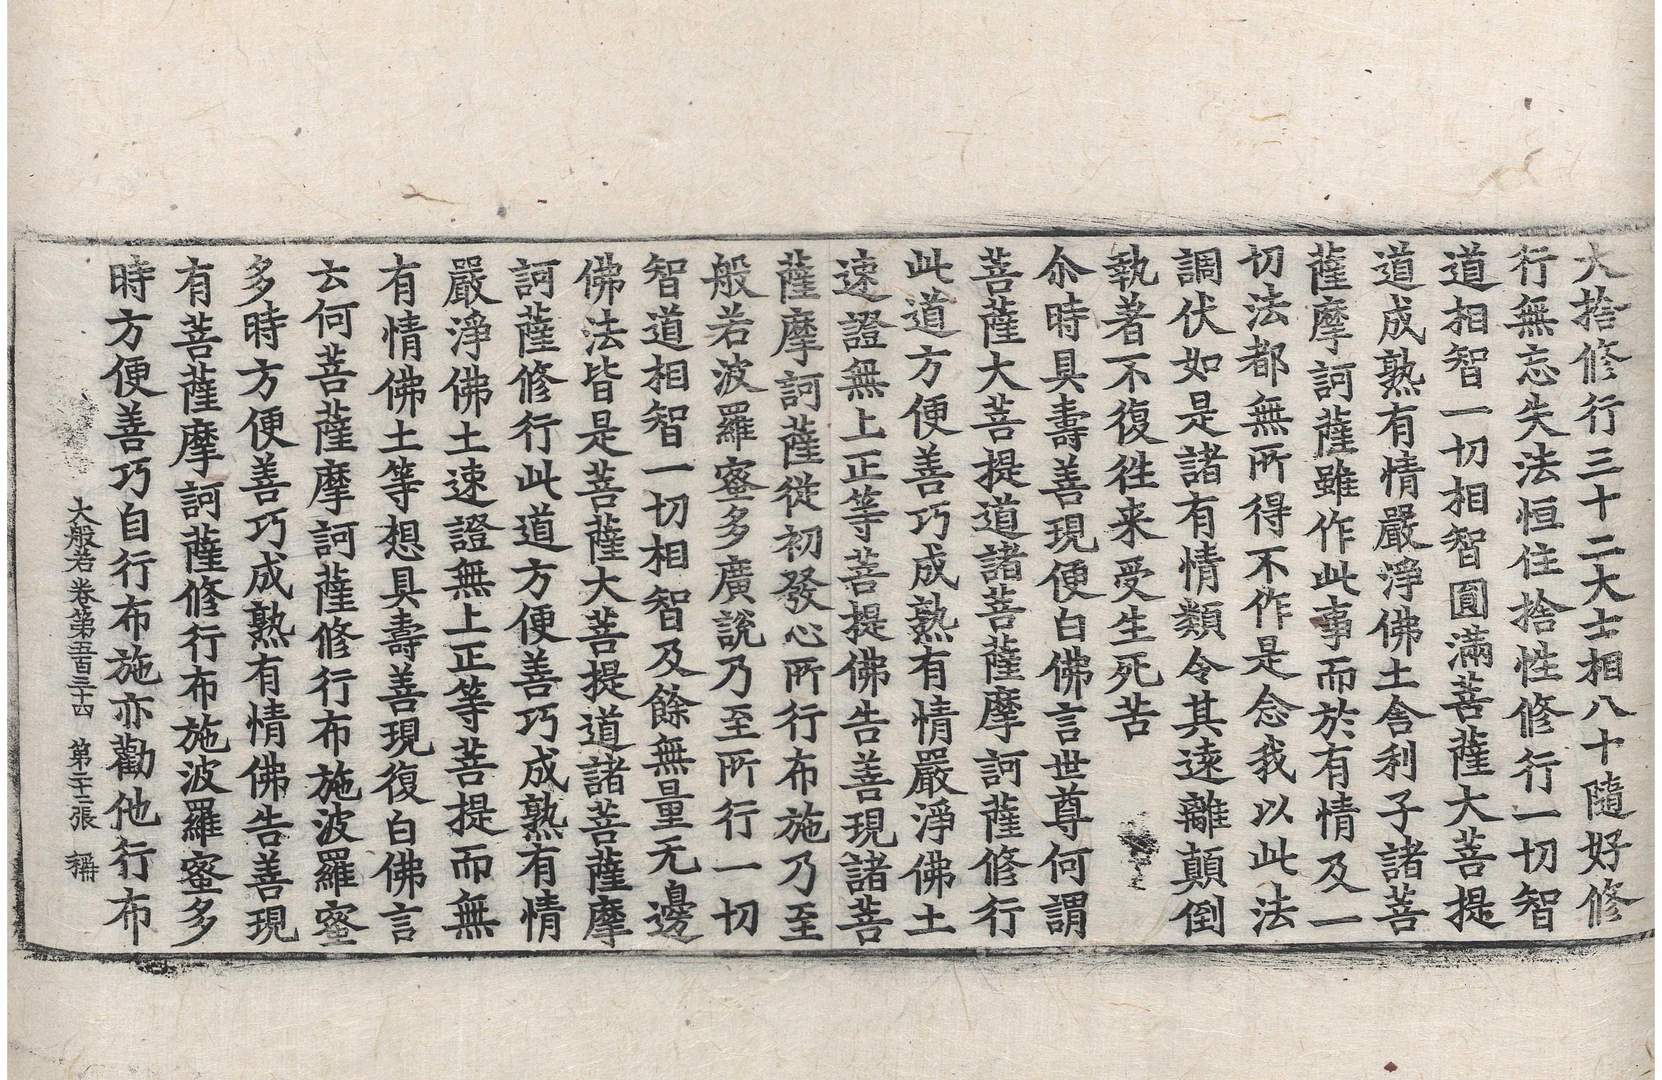 大捨修行三十二大士相八十隨好修
行無忘失法恒住捨性修行一切智
道相智一切相智圓滿菩薩大菩提
道成熟有情嚴淨佛土舍利子諸菩
薩摩訶薩雖作此事而於有情及一
切法都無所得不作是念我以此法
調伏如是諸有情類令其遠離顛倒
執著不復往来受生死苦
尒時具壽善現便白佛言世尊何謂
菩薩大菩提道諸菩薩摩訶薩修行
此道方便善巧成熟有情嚴淨佛土
速證無上正等菩提佛告善現諸菩
薩摩訶薩從初發心所行布施乃至
般若波羅蜜多廣說乃至所行一切
智道相智一切相智及餘無量无邊
佛法皆是菩薩大菩提道諸菩薩摩
訶薩修行此道方便善巧成熟有情
嚴淨佛土速證無上正等菩提而無
有情佛土等想具壽善現復白佛言
云何菩薩摩訶薩修行布施波羅蜜
多時方便善巧成熟有情佛告善現
有菩薩摩訶薩修行布施波羅蜜多
時方便善巧自行布施亦勸他行布
大般若卷第五百三十四 第二十二張